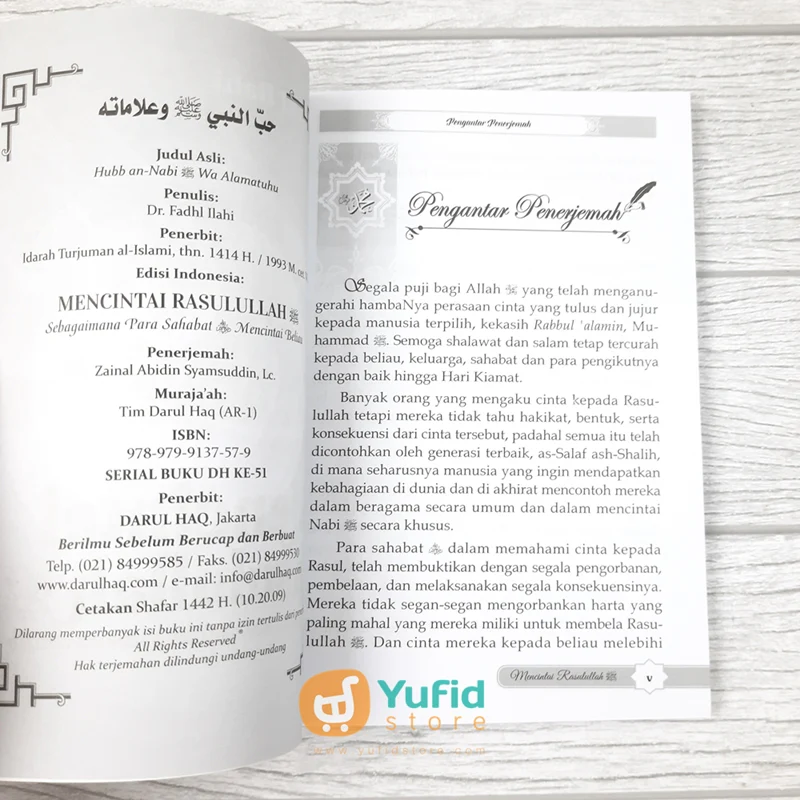 حبّ النبي ﷺ وعلاماته
Judul Asli:
Hubb an-Nabi ﷺ Wa Alamatuhu
Penulis:
Dr. Fadhl Ilahi
Penerbit:
Idarah Turjuman al-Islami, thn. 1414 H. / 1993 M.
Edisi Indonesia:
MENCINTAI RASULULLAH ﷺ
Sebagaimana Para Sahabat Mencintai Beliau
Penerjemah:
Zainal Abidin Syamsuddin, Lc.
Muraja'ah:
Tim Darul Haq (AR-1)
ISBN:
978-979-9137-57-9
SERIAL BUKU DH KE-51
Penerbit:
DARUL HAQ, Jakarta
Berilmu Sebelum Berucap dan Berbuat
Telp. (021) 84999585 / Faks. (021) 84999530
www.darulhaq.com / e-mail: info@darulhaq.com
Cetakan Shafar 1442 H. (10.20.09)
Dilarang memperbanyak isi buku ini tanpa izin tertulis dari
All Rights Reserved ®
Hak terjemahan dilindungi undang-undang
Pengantar Penerjemah
محمد
Pengantar Penerjemah
Segala puji bagi Allah ﷻ yang telah menganu-
gerahi hambaNya perasaan cinta yang tulus dan jujur
kepada manusia terpilih, kekasih Rabbul 'alamin, Mu-
hammad ﷺ. Semoga shalawat dan salam tetap tercurah
kepada beliau, keluarga, sahabat dan para pengikutnya
dengan baik hingga Hari Kiamat.
Banyak orang yang mengaku cinta kepada Rasu-
lullah tetapi mereka tidak tahu hakikat, bentuk, serta
konsekuensi dari cinta tersebut, padahal semua itu telah
dicontohkan oleh generasi terbaik, as-Salaf ash-Shalih,
di mana seharusnya manusia yang ingin mendapatkan
kebahagiaan di dunia dan di akhirat mencontoh mereka
dalam beragama secara umum dan dalam mencintai
Nabi ﷺ secara khusus.
Para sahabat dalam memahami cinta kepada
Rasul, telah membuktikan dengan segala pengorbanan,
pembelaan, dan melaksanakan segala konsekuensinya.
Mereka tidak segan-segan mengorbankan harta yang
paling mahal yang mereka miliki untuk membela Rasu-
lullah ﷺ. Dan cinta mereka kepada beliau melebihi
Mencintai Rasulullah ﷺ
v
Yufid
store
www.yufidstore.com